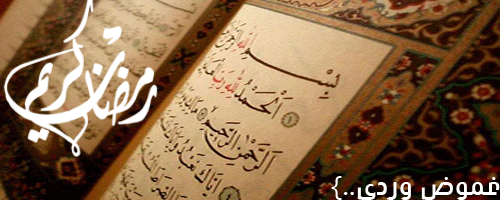 رمضان كريم
بِسْمِ اللهِ الرَّحْمٰنِ
اَلْحَمْدُ لِلّٰهِ رَبِّ
الرَّحْمٰنِ الرَّحِيمِ
اِيَّاكَ نَعْبُدُ
غموض وردي..}